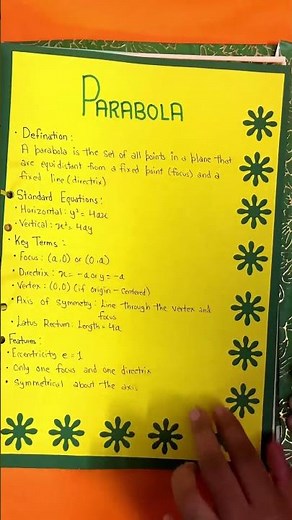 PARABOLA
• Definition :
A parabola is the set of all points in a plane that
are equidistant from a fixed point (focus) and a
fixed line (directrix)
• Standard Equations :
• Horizontal : y² = 4ax
• Vertical : x² = 4ay
• Key Terms :
• Focus : (a,0) or (0,a)
• Directrix : x = -a or y = -a
• Vertex : (0,0) (if origin - centered)
• Axis of symmetry : Line through the vertex and
focus
• Latus Rectum : Length = 4a
• Features :
• Eccentricity e = 1
• Only one focus and one directrix
• Symmetrical about the axis